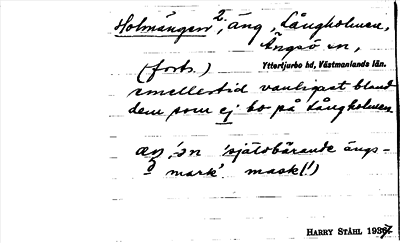 Holmängen 2, äng, Långholmen,
Ängsö sn,
(forts.) Yttertjurbo hd, Västmanlands län.
emellertid vanligast bland
dem som ej bo på Långholmen
"självbärande ängs-
mark". mask(!)
HARRY STÅHL 1937